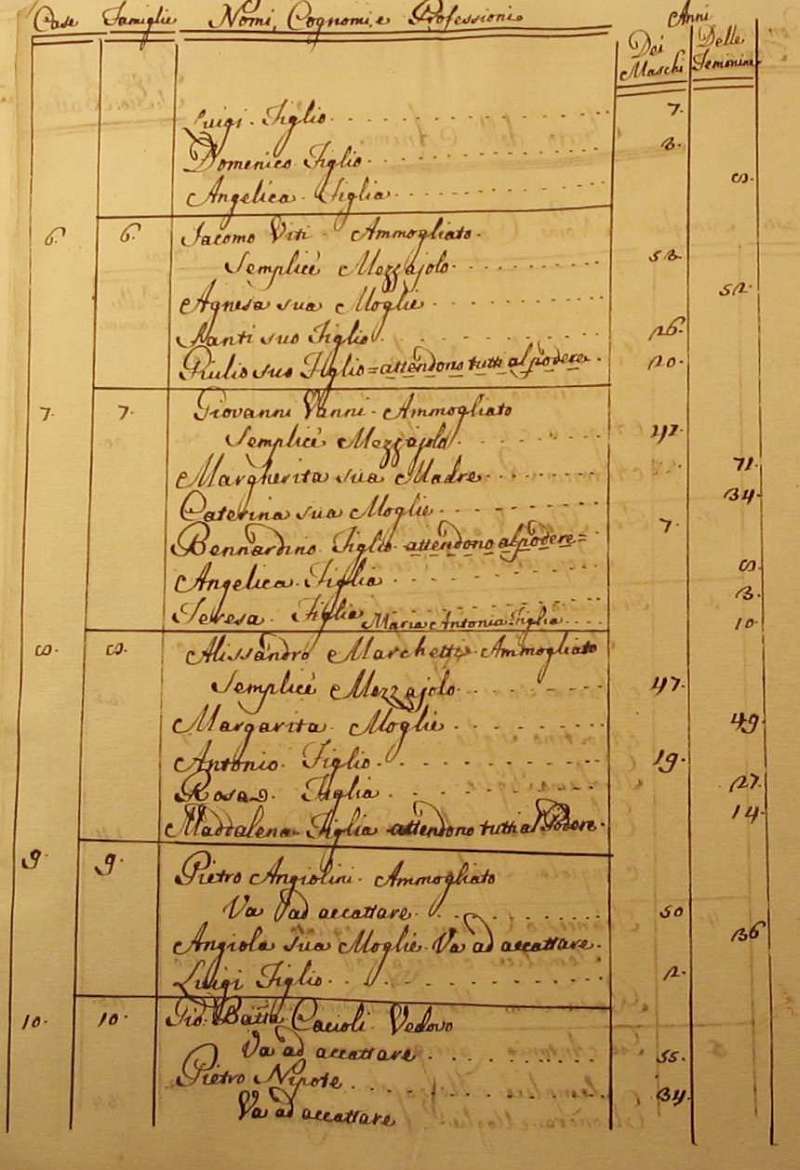 Case Famiglie Nomi, Cognomi, e Professioni Anni
Dei Maschi Delle Feminine
Luigi Figlio 7.
Domenico Figlio 3.
Angelica Figlia 8.
6. 6. Iacomo Viti Ammogliato
Semplice Mezzajolo 53.
Agnesa sua Moglie 52.
Santi suo Figlio 26.
Giulio suo Figlio = attendono tutti al podere. 20.
7. 7. Giovanni Vanni Ammogliato
Semplice Mezzajolo 42.
Margherita sua Madre 71.
Caterina sua Moglie 34.
Bernardino Figlio attendono al podere = 7.
Angelica Figlia 8.
Teresa Figlia 3.
Maria Antonia Figlia 10.
8. 8. Alissandro Marchetti Ammogliato
Semplice Mezzajolo 47.
Margarita Moglie 49.
Antonio Figlio 19.
Rosa Figlia 27.
Maddalena Figlia attendono tutti al Podere. 14.
9. 9. Pietro Angiolini Ammogliato
Va ad accattare 50
Angiola sua Moglie Va ad accattare. 36
Luigi Figlio 2.
10. 10. Gio Batta Cacioli Vedovo
Va ad accattare 55.
Pietro Nipote 34.
Va ad accattare